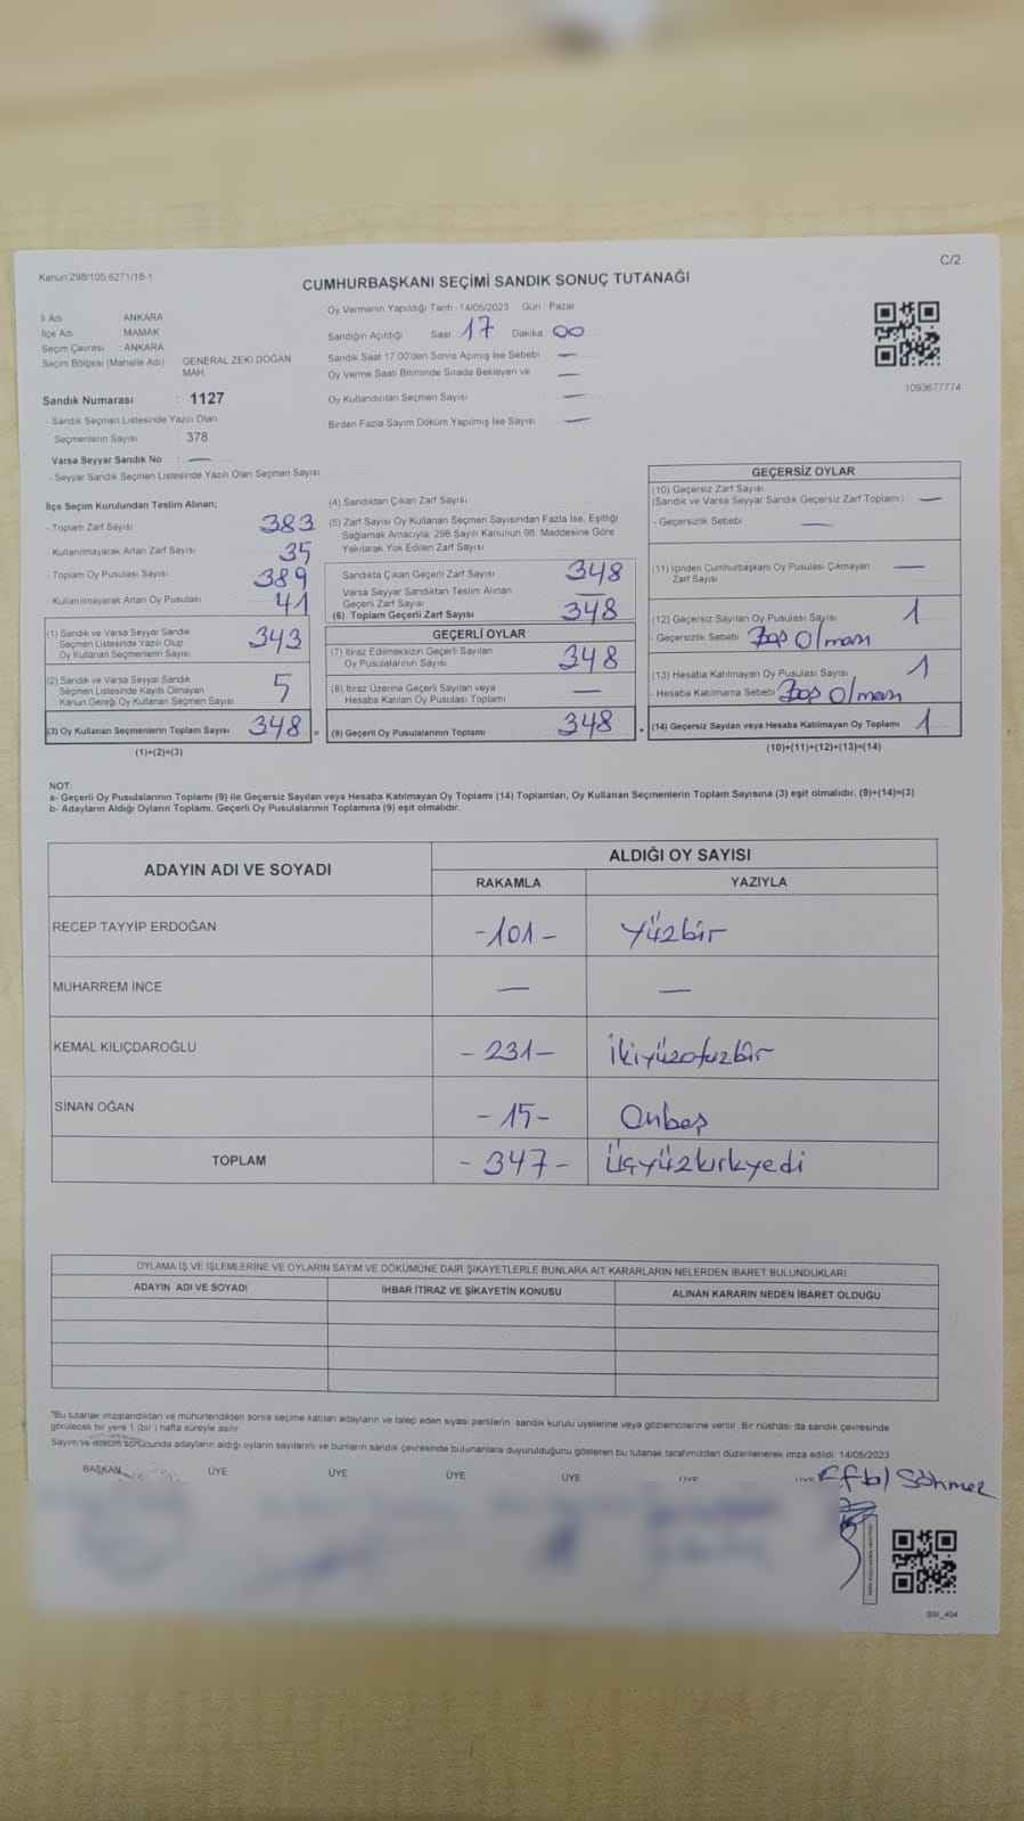 Kanun:298/105,6271/18-1
C/2
CUMHURBAŞKANI SEÇİMİ SANDIK SONUÇ TUTANAĞI
İl Adı : ANKARA
İlçe Adı : MAMAK
Seçim Çevresi : ANKARA
Seçim Bölgesi (Mahalle Adı) : GENERAL ZEKİ DOĞAN
MAH.
Sandık Numarası : 1127
- Sandık Seçmen Listesinde Yazılı Olan
Seçmenlerin Sayısı : 378
Varsa Seyyar Sandık No : —
- Seyyar Sandık Seçmen Listesinde Yazılı Olan Seçmen Sayısı
Oy Vermenin Yapıldığı Tarih : 14/05/2023 Gün : Pazar
Sandığın Açıldığı Saat 17 Dakika 00
Sandık Saat 17.00'den Sonra Açmış İse Sebebi : —
Oy Verme Saati Bitiminde Sırada Bekleyen ve —
Oy Kullandırılan Seçmen Sayısı —
Birden Fazla Sayım Döküm Yapılmış İse Sayısı —
1093677774
İlçe Seçim Kurulundan Teslim Alınan;
- Toplam Zarf Sayısı 383
- Kullanılmayarak Artan Zarf Sayısı 35
- Toplam Oy Pusulası Sayısı 389
- Kullanılmayarak Artan Oy Pusulası 41
(1) Sandık ve Varsa Seyyar Sandık
Seçmen Listesinde Yazılı Olup
Oy Kullanan Seçmenlerin Sayısı 343
(2) Sandık ve Varsa Seyyar Sandık
Seçmen Listesinde Kayıtlı Olmayan
Kanun Gereği Oy Kullanan Seçmen Sayısı 5
(3) Oy Kullanan Seçmenlerin Toplam Sayısı 348
(1)+(2)=(3)
(4) Sandıktan Çıkan Zarf Sayısı
(5) Zarf Sayısı Oy Kullanan Seçmen Sayısından Fazla İse, Eşitliği
Sağlamak Amacıyla, 298 Sayılı Kanunun 98. Maddesine Göre
Yakılarak Yok Edilen Zarf Sayısı
Sandıkta Çıkan Geçerli Zarf Sayısı 348
Varsa Seyyar Sandıktan Teslim Alınan
Geçerli Zarf Sayısı —
(6) Toplam Geçerli Zarf Sayısı 348
GEÇERLİ OYLAR
(7) İtiraz Edilmeksizin Geçerli Sayılan
Oy Pusulalarının Sayısı 348
(8) İtiraz Üzerine Geçerli Sayılan veya
Hesaba Katılan Oy Pusulası Toplamı —
(9) Geçerli Oy Pusulalarının Toplamı 348
GEÇERSİZ OYLAR
(10) Geçersiz Zarf Sayısı
(Sandık ve Varsa Seyyar Sandık Geçersiz Zarf Toplamı) —
- Geçersizlik Sebebi —
(11) İçinden Cumhurbaşkanı Oy Pusulası Çıkmayan
Zarf Sayısı —
(12) Geçersiz Sayılan Oy Pusulası Sayısı 1
- Geçersizlik Sebebi Boş Olması
(13) Hesaba Katılmayan Oy Pusulası Sayısı 1
- Hesaba Katılmama Sebebi Boş Olması
(14) Geçersiz Sayılan veya Hesaba Katılmayan Oy Toplamı 1
(10)+(11)+(12)+(13)=(14)
NOT:
a- Geçerli Oy Pusulalarının Toplamı (9) ile Geçersiz Sayılan veya Hesaba Katılmayan Oy Toplamı (14) Toplamları, Oy Kullanan Seçmenlerin Toplam Sayısına (3) eşit olmalıdır. (9)+(14)=(3)
b- Adayların Aldığı Oyların Toplamı, Geçerli Oy Pusulalarının Toplamına (9) eşit olmalıdır.
ADAYIN ADI VE SOYADI
ALDIĞI OY SAYISI
RAKAMLA YAZIYLA
RECEP TAYYİP ERDOĞAN -101- Yüzbir
MUHARREM İNCE — —
KEMAL KILIÇDAROĞLU -231- İkiyüzotuzbir
SİNAN OĞAN -15- Onbeş
TOPLAM -347- Üçyüzkırkyedi
OYLAMA İŞ VE İŞLEMLERİNE VE OYLARIN SAYIM VE DÖKÜMÜNE DAİR ŞİKAYETLERLE BUNLARA AİT KARARLARIN NELERDEN İBARET BULUNDUKLARI
ADAYIN ADI VE SOYADI İHBAR İTİRAZ VE ŞİKAYETİN KONUSU ALINAN KARARIN NEDEN İBARET OLDUĞU
"Bu tutanak imzalandıktan ve mühürlendikten sonra seçime katılan adayların ve talep eden siyasi partilerin sandık kurulu üyelerine veya gözlemcilerine verilir. Bir nüshası da sandık çevresinde
görülecek bir yere 1 (bir) hafta süreyle asılır.
Sayım ve döküm sonucunda adayların aldığı oyların sayılarını ve bunların sandık çevresinde bulunanlara duyurulduğunu gösteren bu tutanak tarafımızdan düzenlenerek imza edildi. 14/05/2023
BAŞKAN ÜYE ÜYE ÜYE ÜYE ÜYE ÜYE
Sönmez